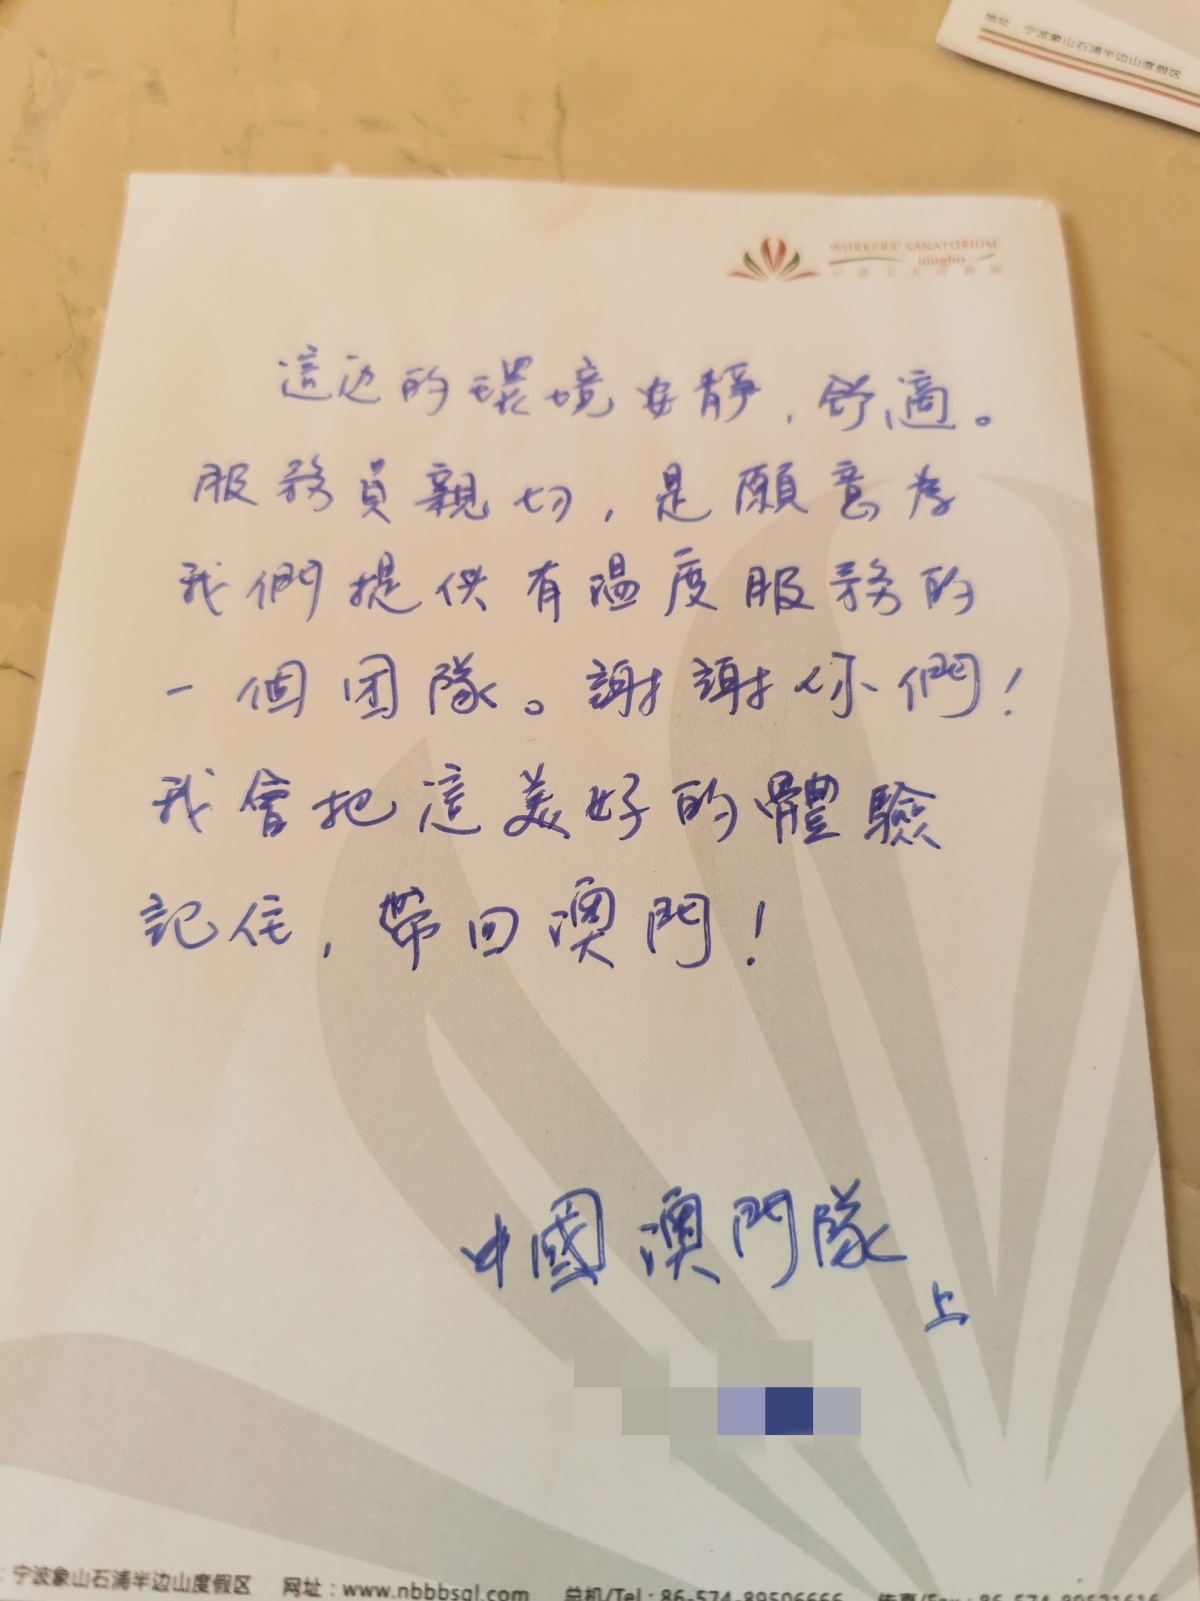 址：宁波象山石浦半边山度假区
WORKERS' SANATORIUM
ningbo
宁波工人疗养院
這边的環境安靜，舒適。
服務員親切，是願意为
我們提供有溫度服務的
一個团隊。謝謝你們！
我會把這美好的體驗
記住，帶回澳門！
中國澳門隊
上
：宁波象山石浦半边山度假区 网址：www.nbbbsgl.com 总机/Tel：86-574-89506666 传真/Fax：86-574-89521616